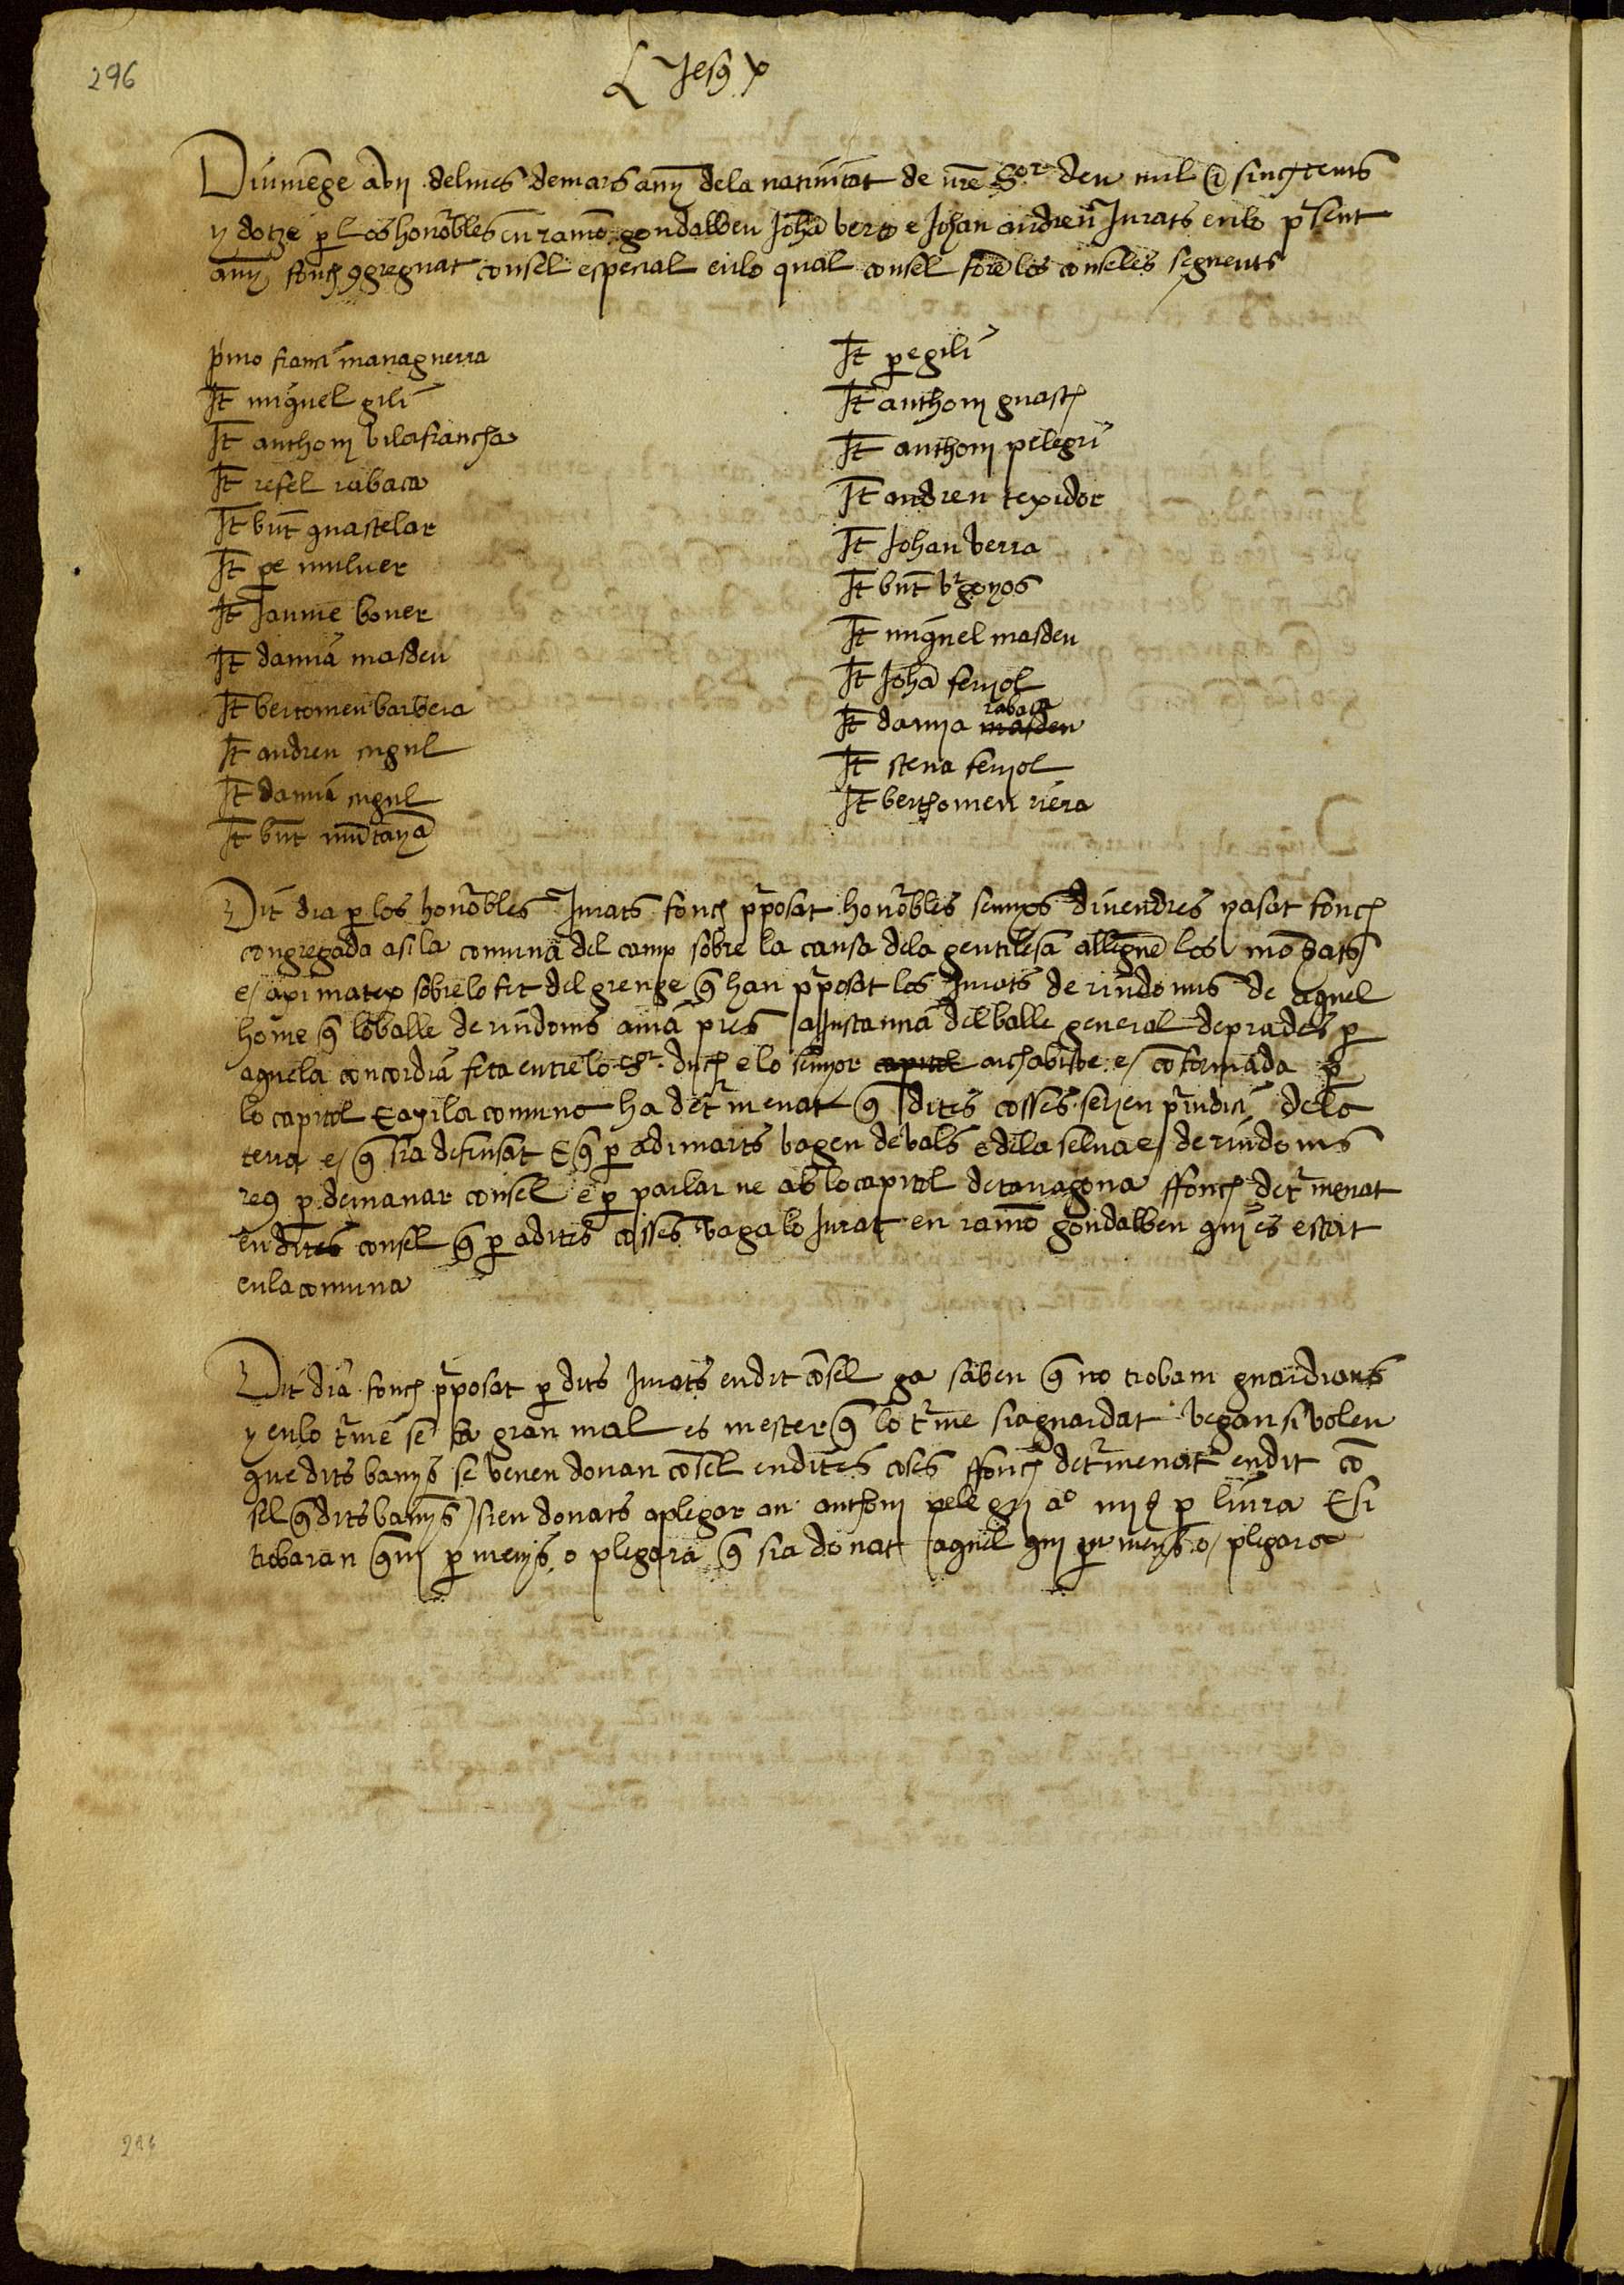 296
Jesus X
Diumēge a vij delmes de mars any dela nativitat de nre Sor deu mil @ sinch cents
y dotze p los honorables en ramō gondalbeu Johā vero e Johan andreu Jurats en lo psent
any fonch 9gregnat consel espesial en lo qual consel forē los conseles seguents
pmo franci managuerra
It miquel gili
It anthoni vilafrancha
It refel rabaca
It bnt guastelar
It pe muluer
It Jaume bover
It damia masdeu
It bertomeu barbera
It andreu cugul
It damia cugul
It bnt mūtanyā
It pe gili
It anthoni guasch
It anthoni pelegri
It andreu texidor
It Johan verra
It bnt brgonyos
It miquel masdeu
It Johā feriol
rabaca
It damia masdeu
It steva feriol
It berthomeu riera
Dit dia p los honorables Jurats fonch pposat honorables senyos divendres pasat fonch
congregada asi la comuna del camp sobre la causa dela gentilesa allegnē los mogats
e axi matex sobre lo fet del greuge q han pposat los Jurats de riudoms de aquel
home q lo balle de riudoms avia pres a Instancia del balle general de prades p
aquela concordia feta entre lo Sr duch e lo senyor capitol archabisbe e cōfermada p
lo capitol E axi la comuna ha detrmenat q dites cosses serien priudici dela
terra e q sia defensat E q p a dimarts vagen de vals e dela selva e de riudoms
reus p demanar consel e p parlar ne ab lo capitol de tarragona ffonch detrmenat
en dites consel q p a dites cosses vaga lo Jurat en ramō gondalbeu qui es estat
en la comuna
Dit dia fonch pposat p dits Jurats en dit cōsel ga saben q no trobam guardians
y en lo trme se fa gran mal es mester q lo trme sia guardat vegan si volen
que dits banys se venen donan cōsel en dites coses ffonch detrmenat en dit cō
sel q dits banys sien donats a plegar an anthoni pelegri a o iiij d p liura E si
trobaran qui p menys o plegara q sia donat a aquel qui per menys o plegara
296